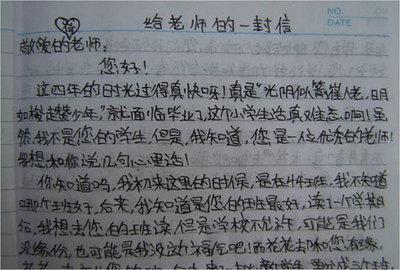 给老师的一封信
NO.
DATE
敬爱的老师:
您好!
这四年的时光过得真快呀!真是"光阴似箭催人老,日月
如梭赶少年。"就面临毕业了,这个小学生活真难忘啊!虽
然,我不是您的学生,但是,我知道,您是一位优秀的老师!
我想和你说几句心里话!
你知道吗,我初来这里的时候,是在4班,我不知道
哪个班好,后来,我知道是您的班最好,读了一个学期
后,我想去您的班读,但是学校不允许,可能是我们
没缘份,也可能是我没这个福气吧!而